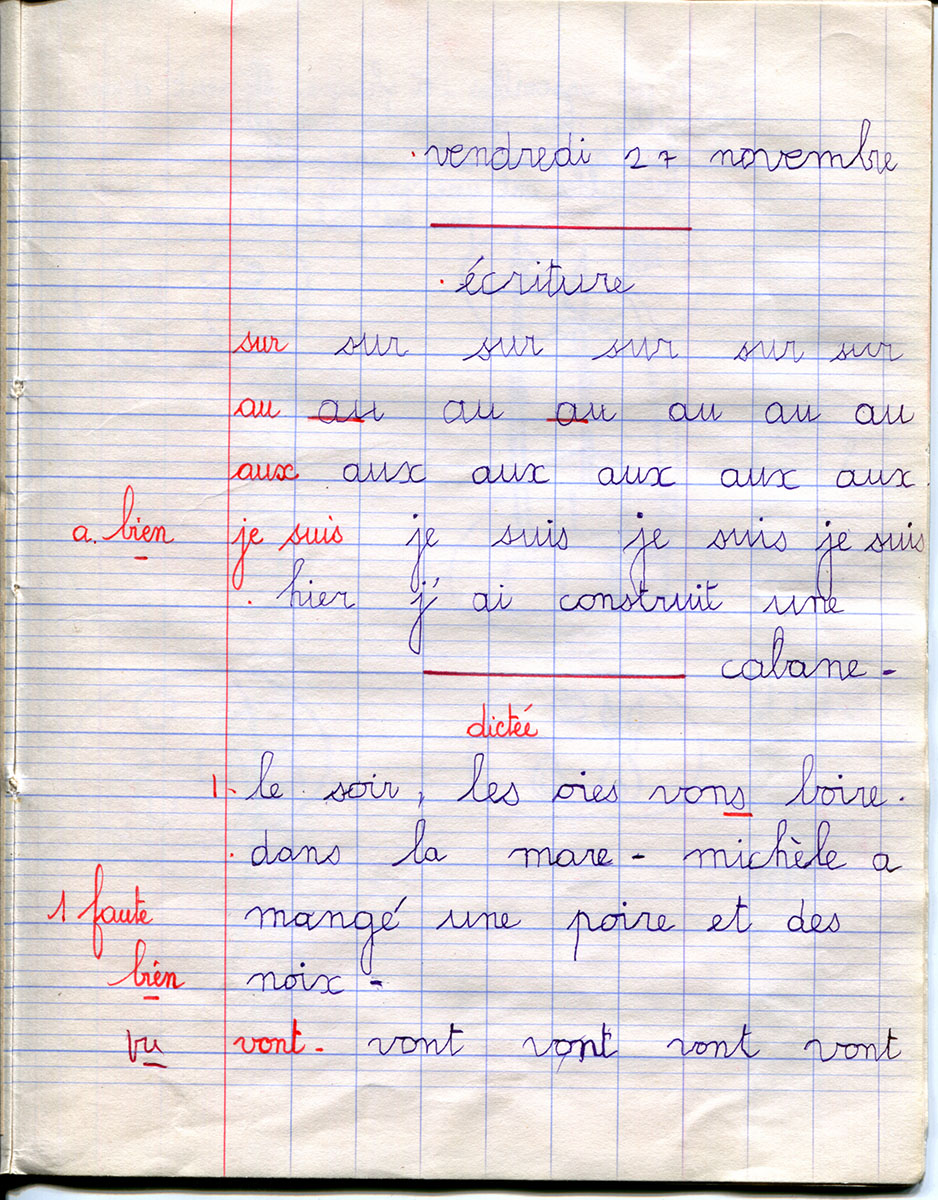 vendredi 27 novembre
écriture
sur sur sur sur sur sur
au au au au au au au
aux aux aux aux aux aux
a. bien je suis je suis je suis je suis
hier j'ai construit une
cabane -
dictée
1. le soir, les oies vons boire.
dans la mare - michèle a
1 faute mangé une poire et des
bien noix -
vu vont - vont vont vont vont